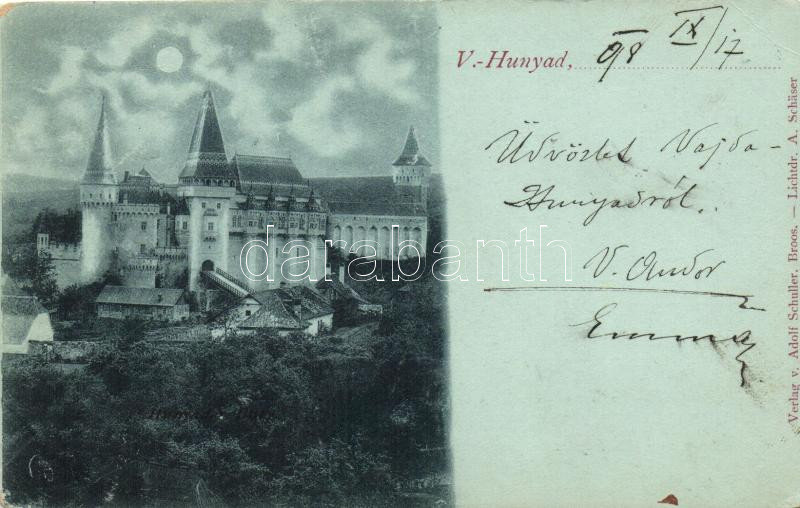 V.-Hunyad, 98 IX/17
Üdvözlet Vajda-
Hunyadról.
V. Andor
Emma
Verlag v. Adolf Schuller, Broos. — Lichtdr. A. Schäser
darabanth